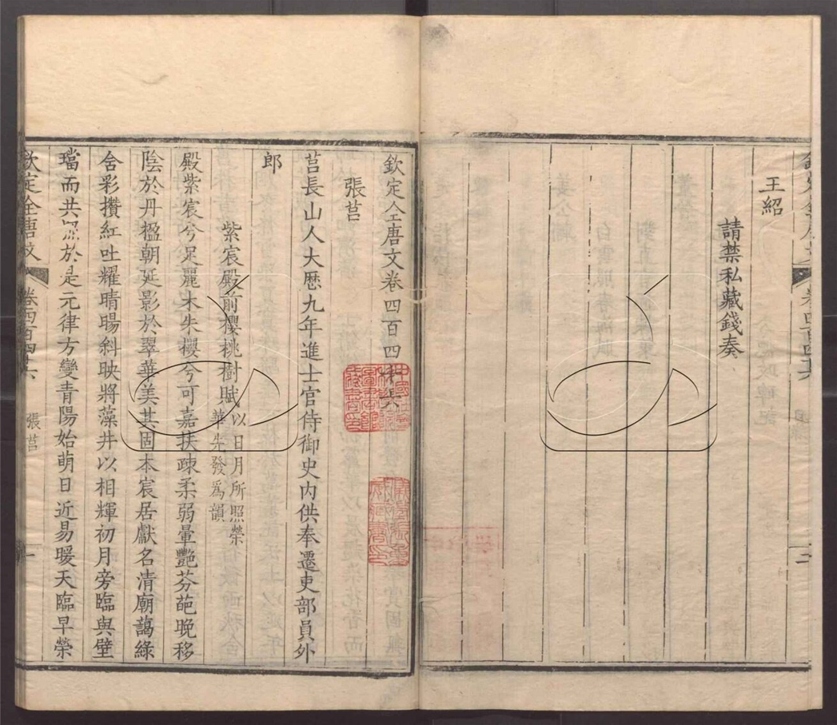 王紹
請禁私藏錢奏
欽定全唐文卷四百四十六
張莒
莒長山人大歷九年進士官侍御史內供奉遷吏部員外
郎
紫宸殿前櫻桃樹賦以日月所照榮華先發爲韻
殿紫宸兮足麗木朱櫻兮可嘉扶疎柔弱暈艷芬葩晚移
陰於丹楹朝延影於翠華美其固本宸居獻名清廟藹綠
舍彩攢紅吐耀晴暘斜映將藻井以相輝初月旁臨與璧
璫而共深於是元律方變青陽始萌日近易暖天臨早榮
欽定全唐文
卷四百四十六
張莒
一